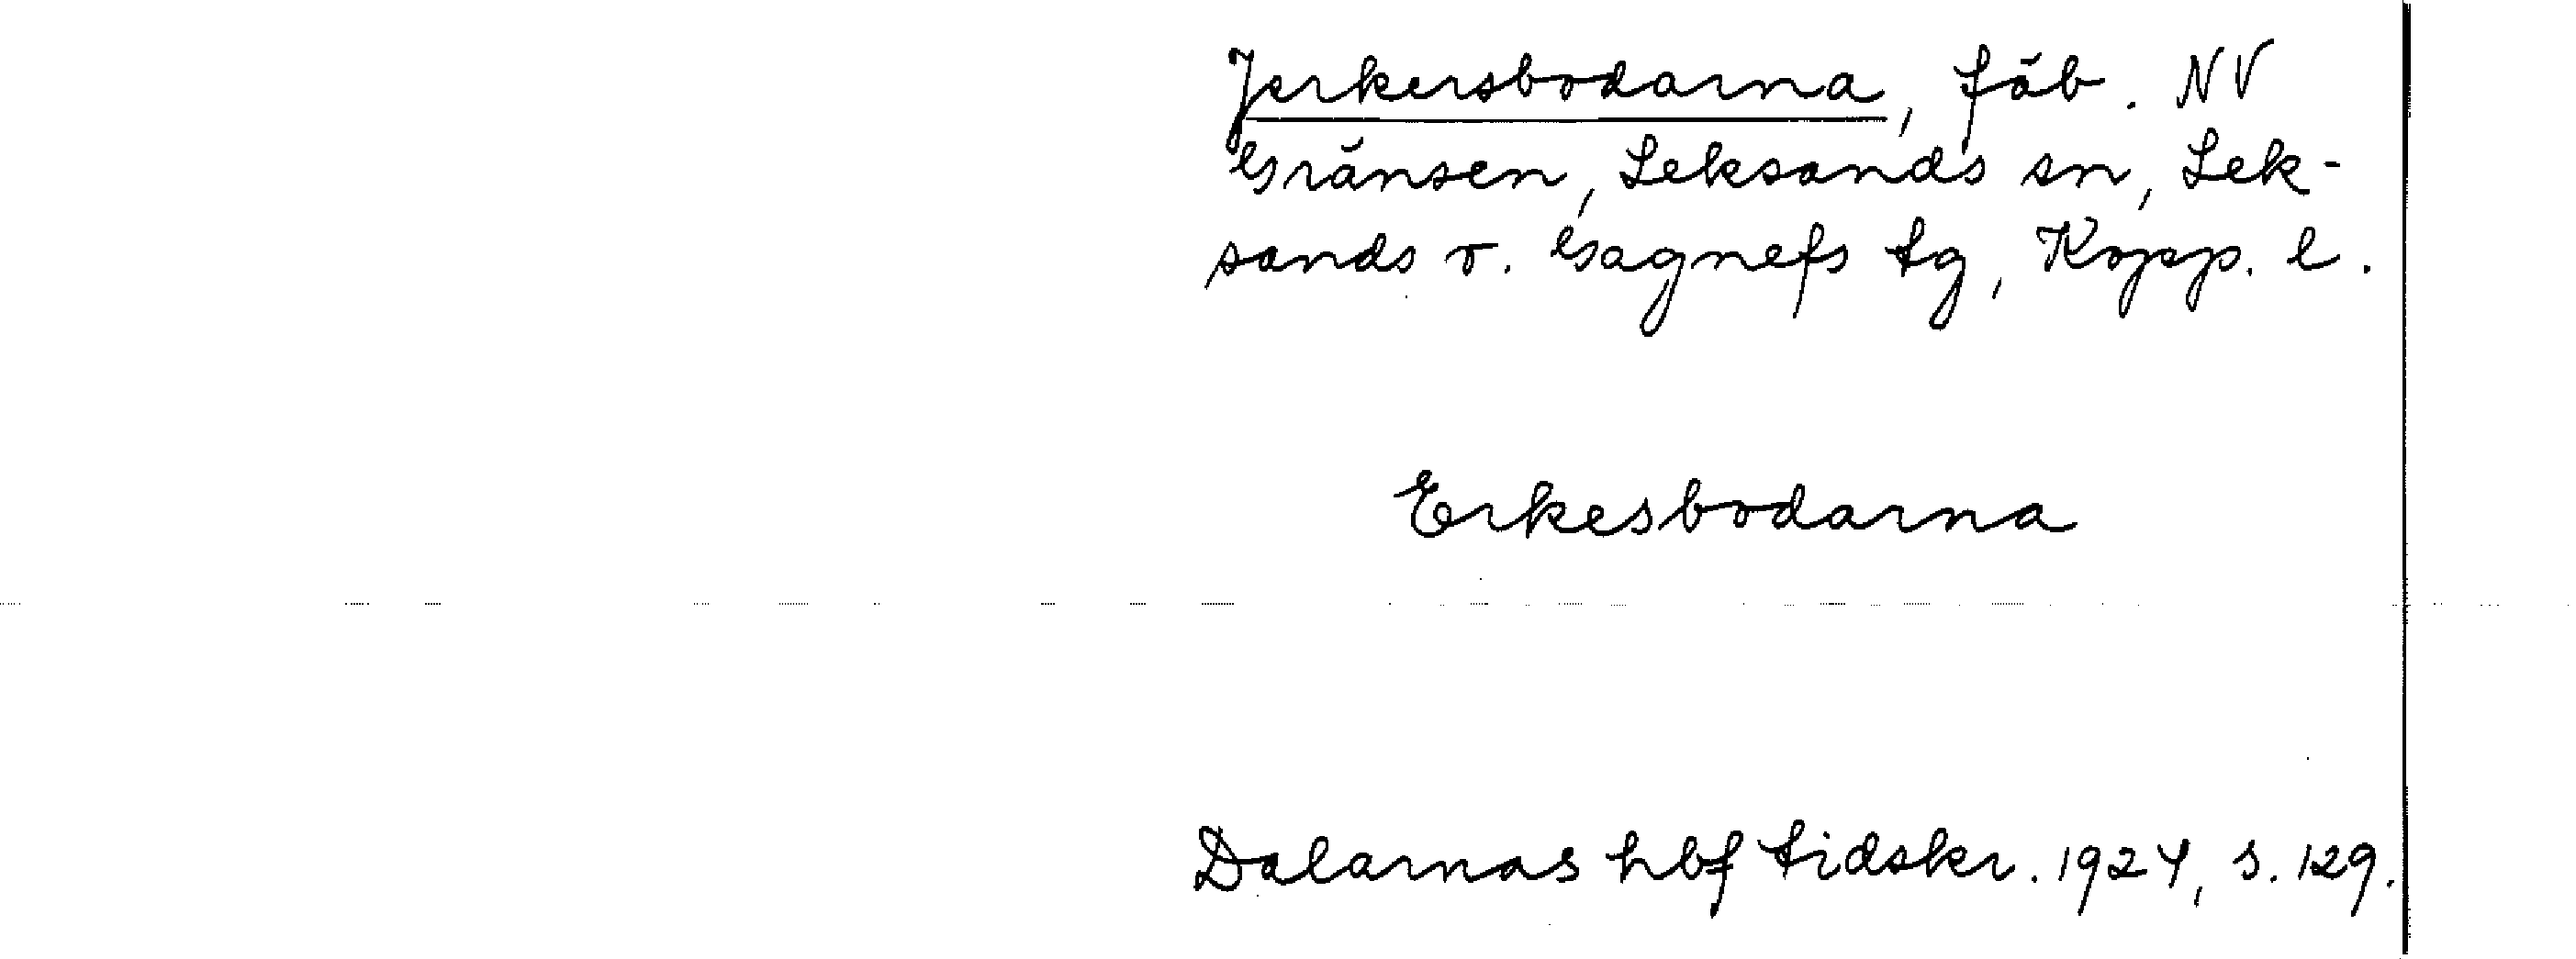 Jerkersbodarna, fäb. NV
Gränsen, Leksands sn, Lek-
sands o. Gagnefs tg, Kopp. l.
Erkesbodarna
Dalarnas hbf tidskr. 1924, s. 129.